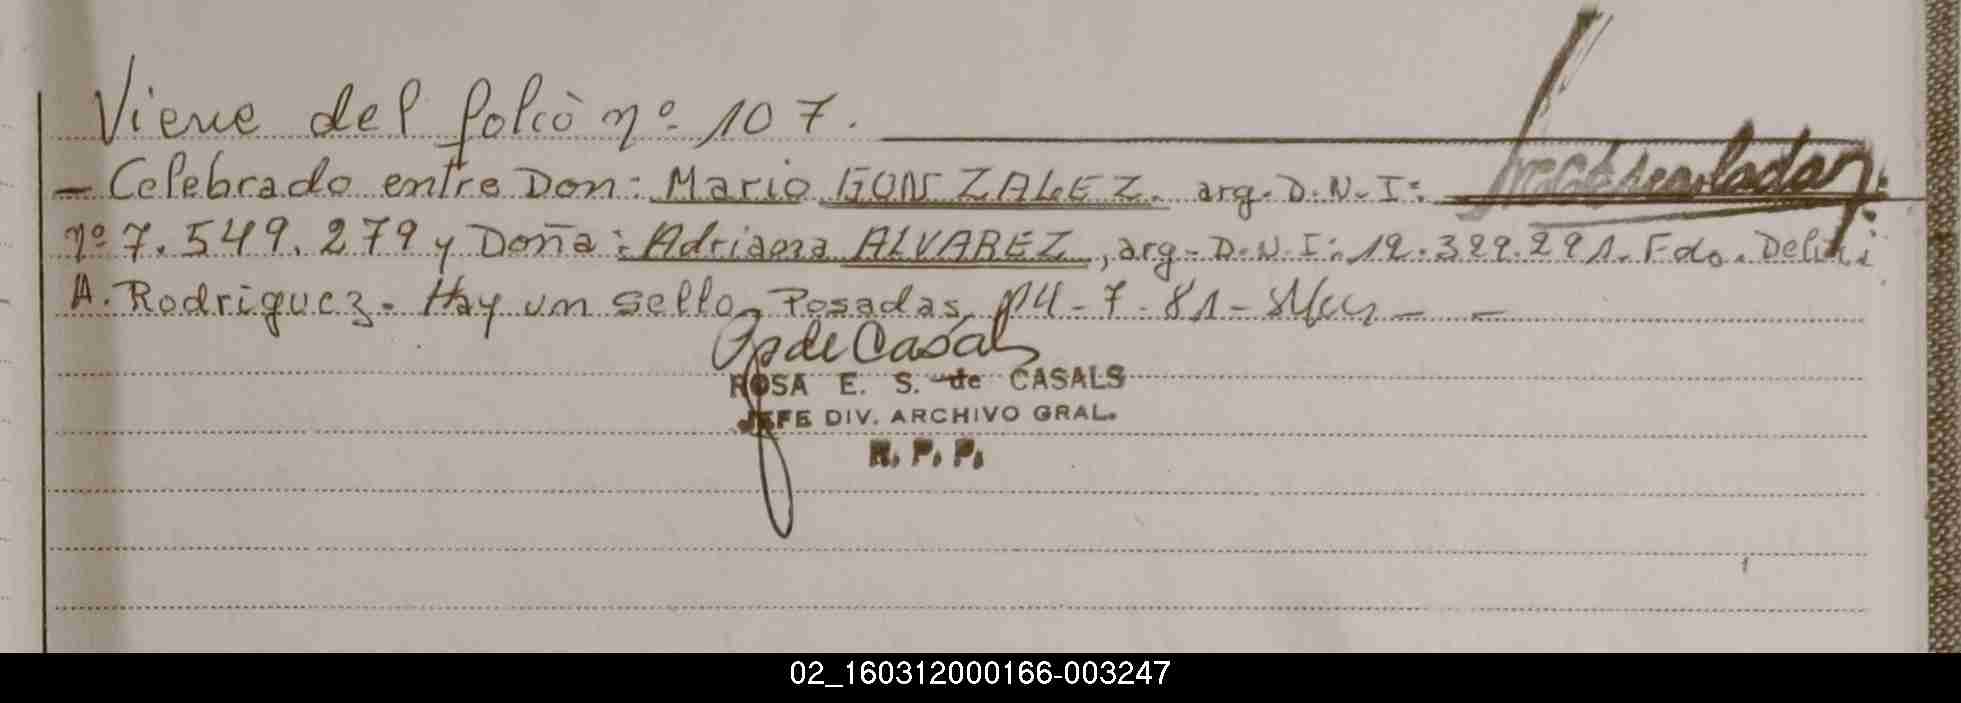 Viene del folio nº 107.
- Celebrado entre Don: Mario GONZALEZ. arg. D.N.I:
nº 7.549.279 y Doña: Adriana ALVAREZ, arg. D.N.I: 12.329.291. Fdo. Delini
A. Rodriguez. Hay un sello, Posadas, 14-7-81-
R de Casals
ROSA E. S. de CASALS
JEFE DIV. ARCHIVO GRAL.
R. P. P.
02_160312000166-003247